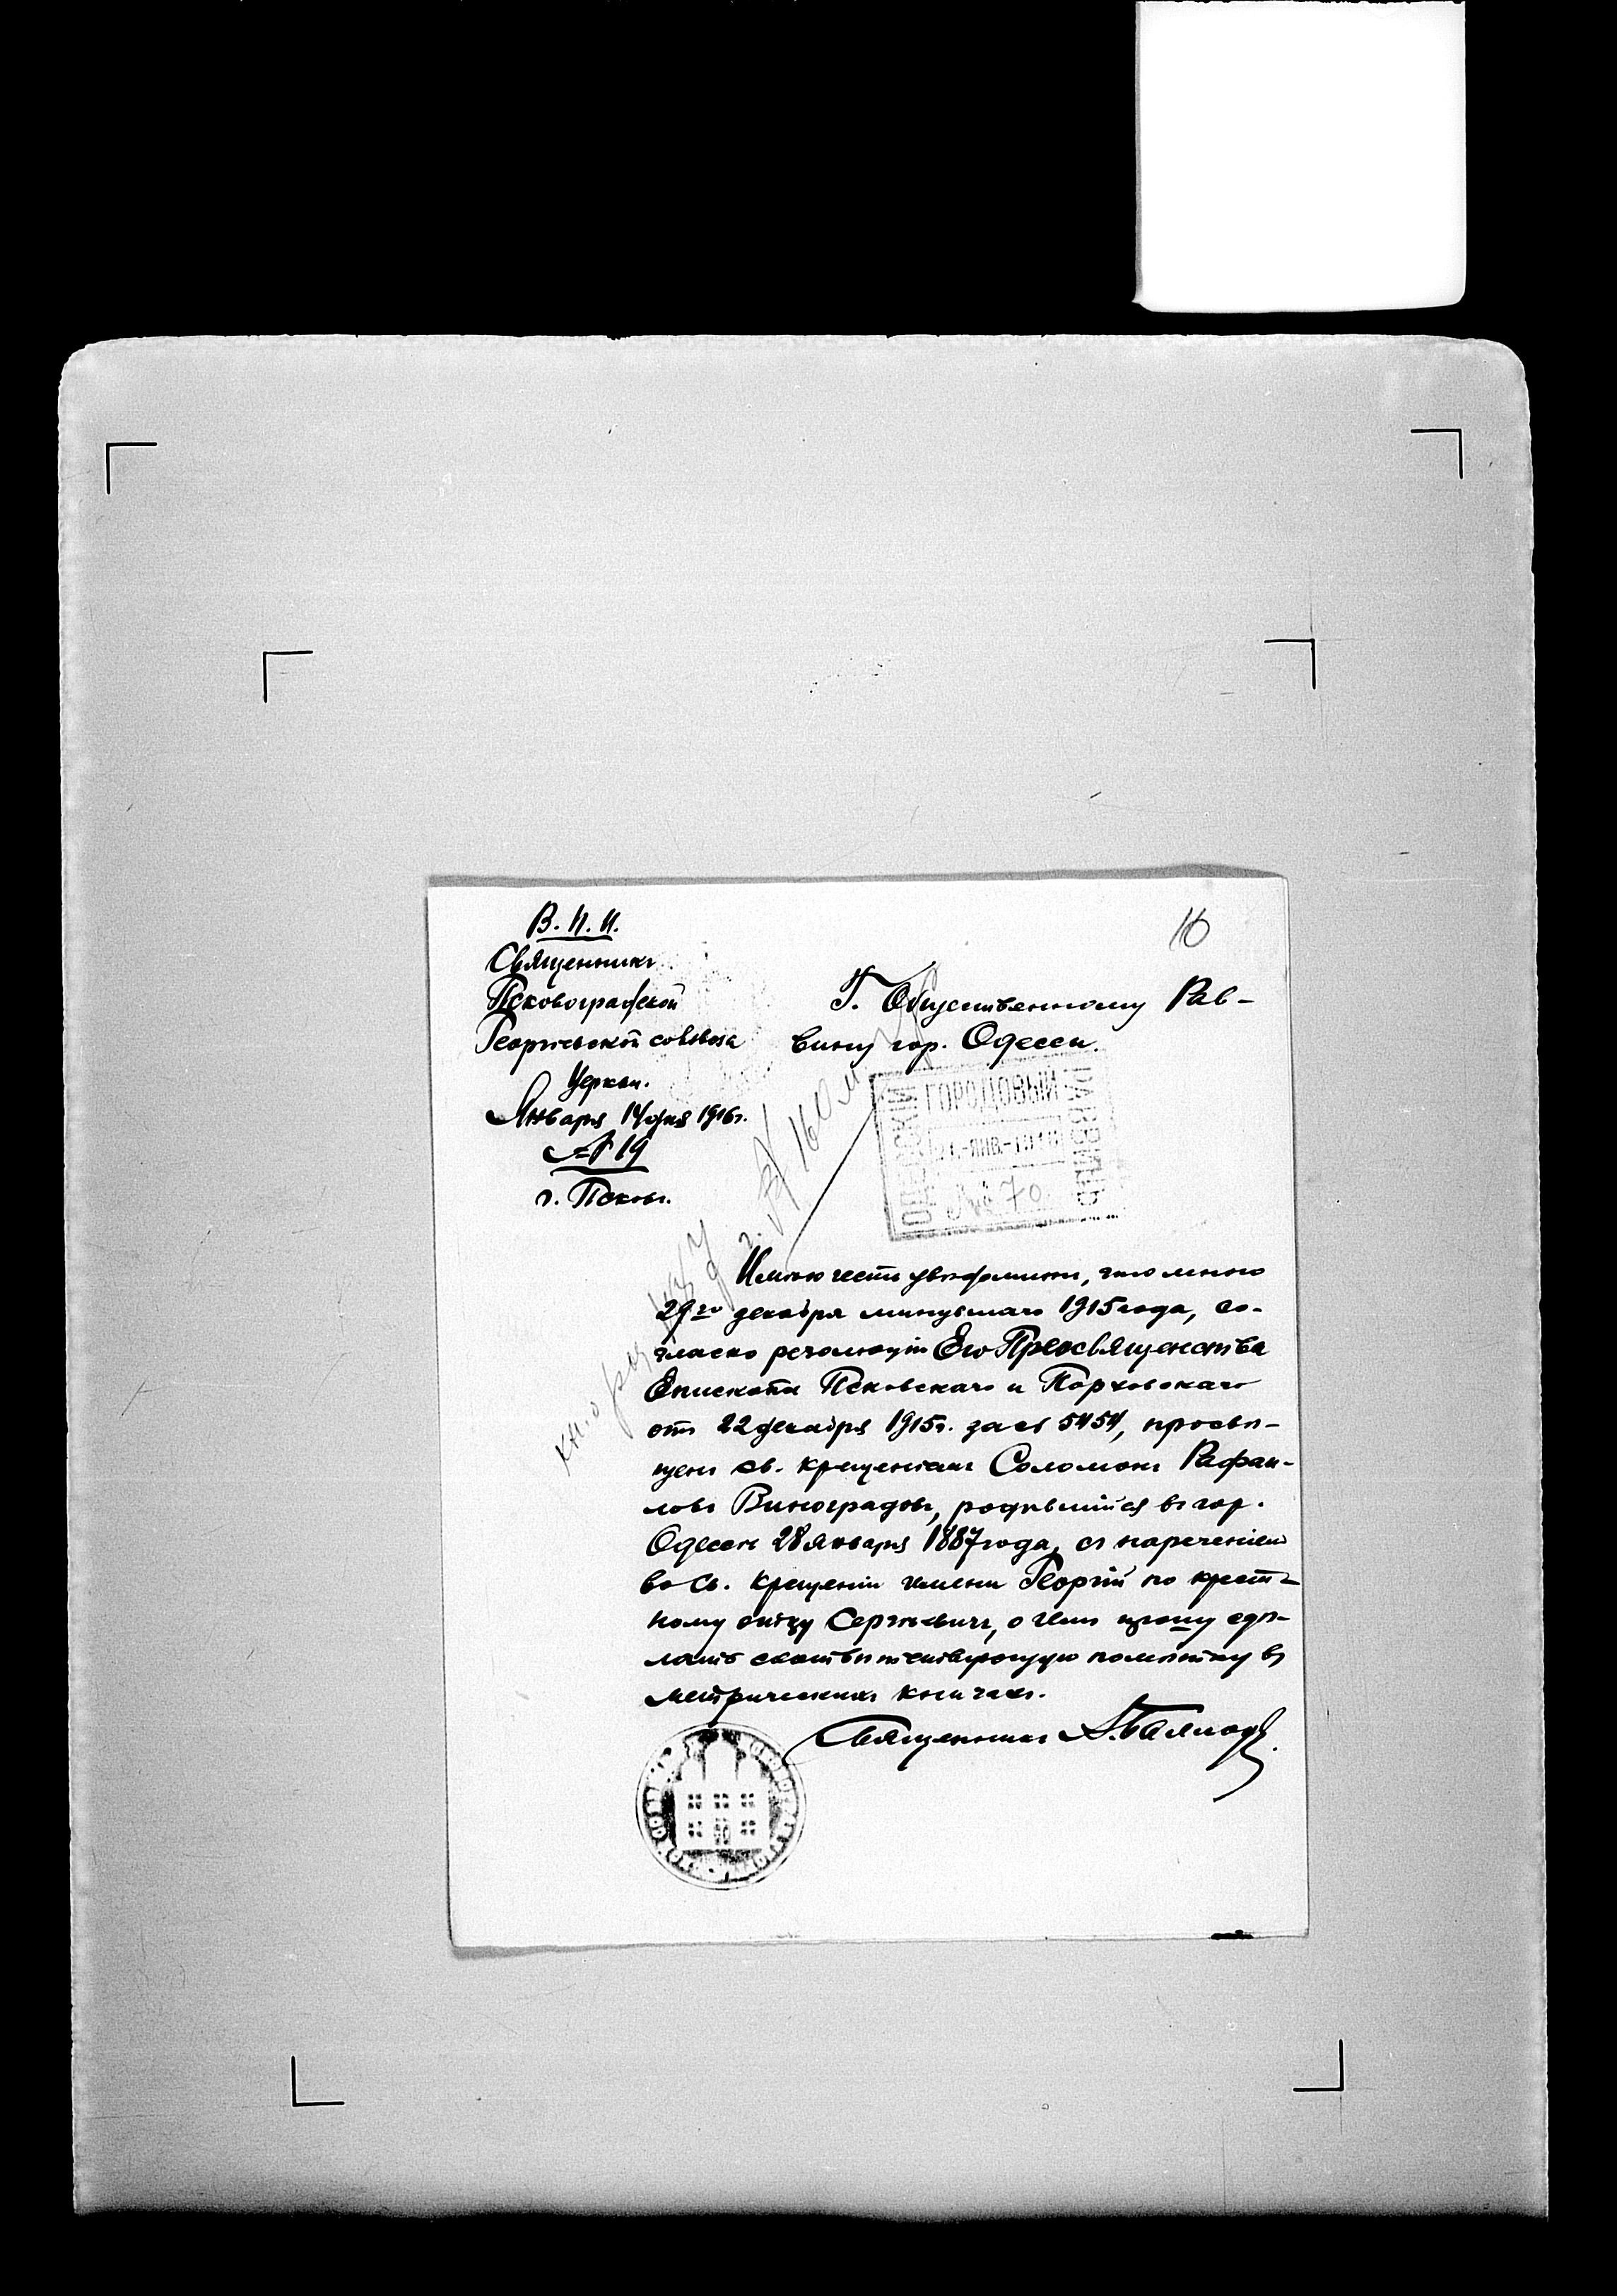 В. П. И.
Священникъ
Псковоградской
Георгіевской со взвоза
Церкви.
Января 14 дня 1916 г.
№ 19
г. Псковъ.
10
Г. Общественному Рав-
вину гор. Одессы.
ОДЕССКІЙ
ГОРОДОВЫЙ
РАВВИНЪ
ЯНВ. 1916
№ 70
Имѣю честь увѣдомить, что мною
29го декабря минувшаго 1915 года, со-
гласно резолюціи Его Преосвященства
Епископа Псковскаго и Порховскаго
отъ 22 декабря 1915 г. за № 5454, просвѣ-
щенъ св. крещеніемъ Соломонъ Рафаи-
ловъ Виноградовъ, родившійся въ гор.
Одессѣ 28 января 1887 года, съ нареченіемъ
во Св. крещеніи имени Георгій по крест-
ному отцу Сергѣевичъ, о чемъ прошу сдѣ-
лать соотвѣтствующую помѣтку въ
метрическихъ книгахъ.
Священникъ А.